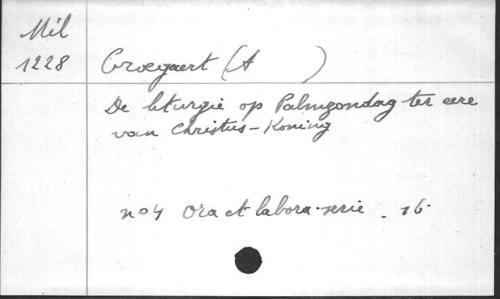 Mil
1228
Croegaert (A )
De liturgie op Palmzondag ter eere
van Christus-Koning
no 4 Ora et labora-serie - 16